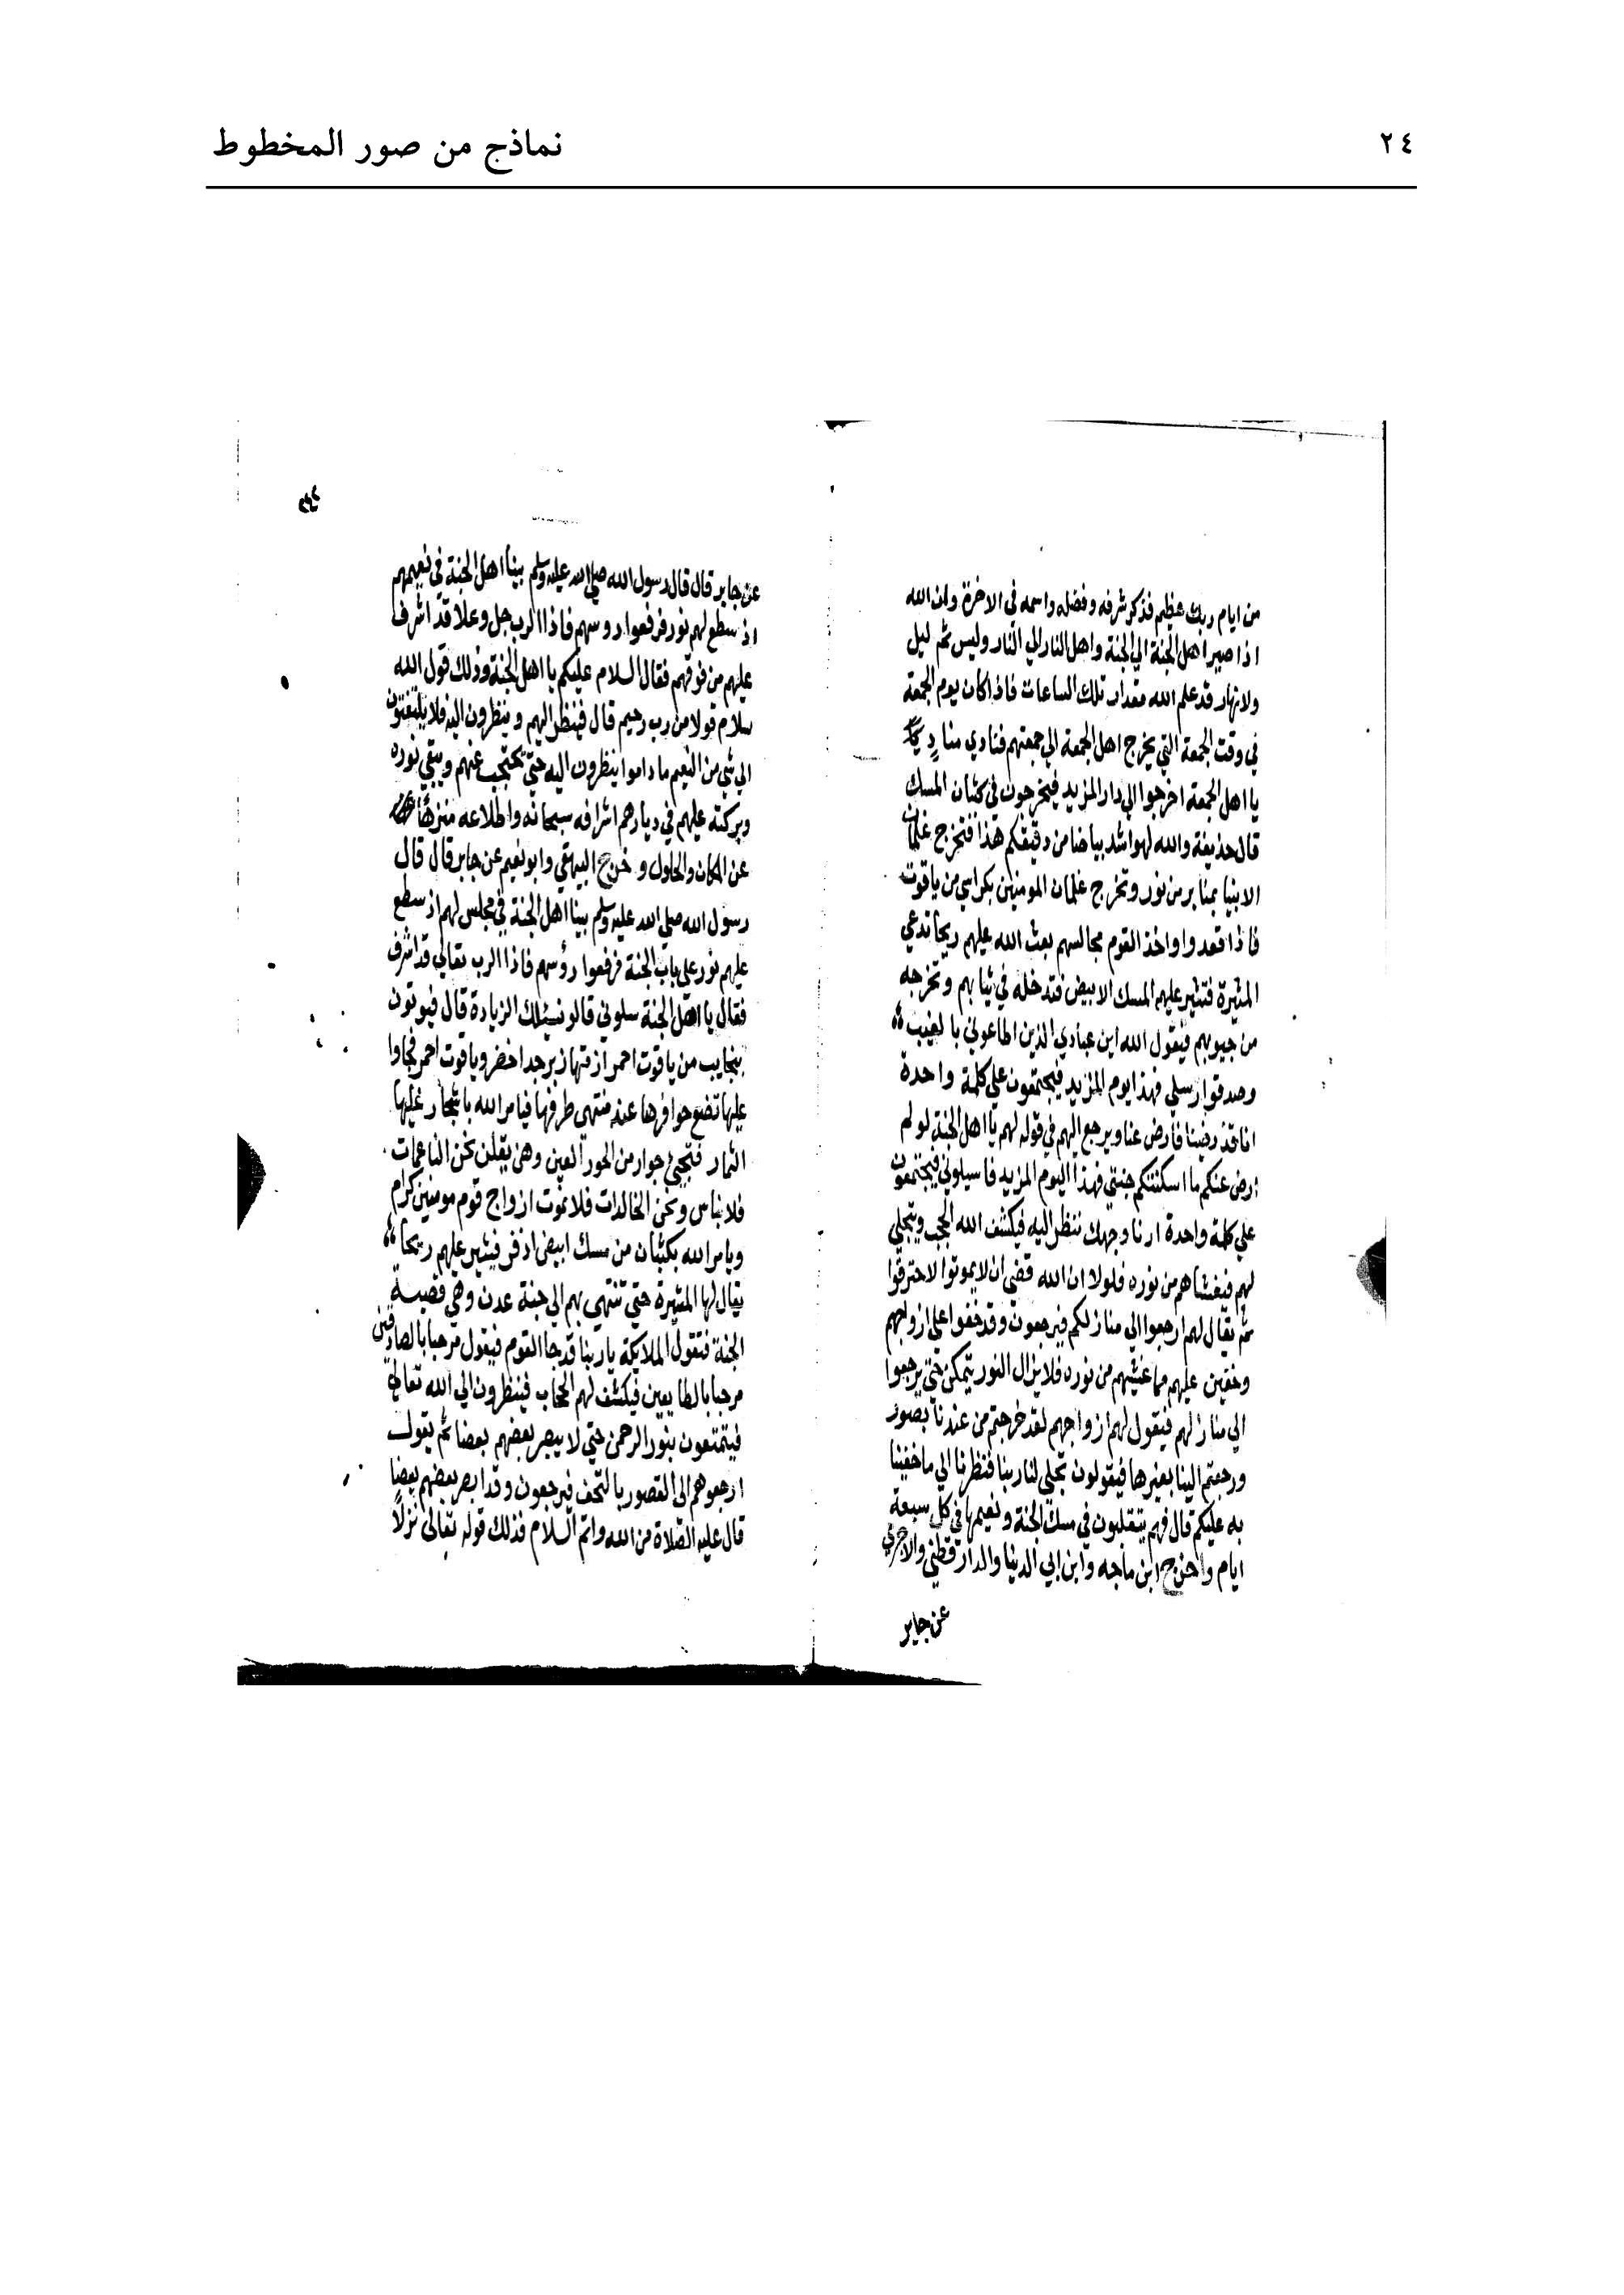 ٢٤
نماذج من صور المخطوط
من ايام ربك عظيم فذكر شرفه وفضله واسمه في الاخرة وان الله
اذا صير اهل الجنة الي الجنة واهل النار الي النار وليس ثم ليل
ولا نهار قد علم الله مقدار تلك الساعات فاذا كان يوم الجمعة
في وقت الجمعة التي يخرج اهل الجمعة الي جمعتهم فنادي مناد
يا اهل الجمعة اخرجوا الي دار المزيد فيخرجون في كثبان المسك
قال حذيفة والله لهو اشد بياضا من دقيقكم هذا فتخرج غلمان
الانبيا بمنابر من نور وتخرج غلمان المومنين بكراسي من ياقوت
فاذا قعدوا واخذ القوم مجالسهم بعث الله عليهم ريحا تدعي
المثيرة فتثير عليهم المسك الابيض فتدخله في ثيابهم وتخرجه
من جيوبهم فيقول الله اين عبادي الذين اطاعوني بالغيب
وصدقوا رسلي فهذا يوم المزيد فيجتمعون علي كلمة واحدة
انا قد رضينا فارض عنا ويرجع اليهم في قوله لهم يا اهل الجنة لو لم
ارض عنكم ما اسكنتكم جنتي فهذا اليوم المزيد فاسيلوني فيجتمعون
علي كلمة واحدة ارنا وجهك ننظر اليه فيكشف الله الحجب ويتجلي
لهم فيغشاهم من نوره فلولا ان الله قضي ان لا يموتوا لاحترقوا
ثم يقال لهم ارجعوا الي منازلكم فيرجعون وقد خفوا علي ازواجهم
وخفين عليهم مما غشيهم من نوره فلا يزال النور يتمكن حتي يرجعوا
الي منازلهم فيقول لهم ازواجهم لقد خرجتم من عندنا بصور
ورجعتم الينا بغيرها فيقولون تجلي لنا ربنا فنظرنا الي ما خفينا
به عليكم قال فهم يتقلبون في مسك الجنة ونعيمها في كل سبعة
ايام واخرج ابن ماجه وابن ابي الدنيا والدارقطني والاجري
عن جابر
عن جابر قال قال رسول الله صلي الله عليه وسلم بينا اهل الجنة في نعيمهم
اذ سطع لهم نور فرفعوا روسهم فاذا الرب جل وعلا قد اشرف
عليهم من فوقهم فقال السلام عليكم يا اهل الجنة وذلك قول الله
سلام قولا من رب رحيم قال فينظر اليهم وينظرون اليه فلا يلتفتون
الي شي من النعيم ما داموا ينظرون اليه حتي يحتجب عنهم ويبقي نوره
وبركته عليهم في ديارهم اشرافه سبحانه واطلاعه منزها
عن المكان والحلول وخرج البيهقي وابو نعيم عن جابر قال قال
رسول الله صلي الله عليه وسلم بينا اهل الجنة في مجلس لهم اذ سطع
عليهم نور علي باب الجنة فرفعوا رؤسهم فاذا الرب تعالي قد اشرف
فقال يا اهل الجنة سلوني قالو نسئلك الزيادة قال فيوتون
بنجايب من ياقوت احمر ازمتها زبرجد اخضر وياقوت احمر فجاوا
عليها تضع حوافرها عند منتهي طرفها فيامر الله باشجار عليها
الثمار فتجيئ جوار من الحور العين وهن يقلن نحن الناعمات
فلا نباس ونحن الخالدات فلا نموت ازواج قوم مومنين كرام
ويامر الله بكثبان من مسك ابيض اذفر فينثير عليهم ريحا
يقال لها المثيرة حتي تنتهي بهم الي جنة عدن وهي قصبة
الجنة فتقول الملايكة ياربنا قد جا القوم فيقول مرحبا بالصادقين
مرحبا بالطايعين فيكشف لهم الحجاب فينظرون الي الله تعالي
فيتمتعون بنور الرحمن حتي لا يبصر بعضهم بعضا ثم يقول
ارجعوهم الي القصور بالتحف فيرجعون وقد ابصر بعضهم بعضا
قال عليه الصلاة من الله واتم السلام فذلك قوله تعالي نزلا